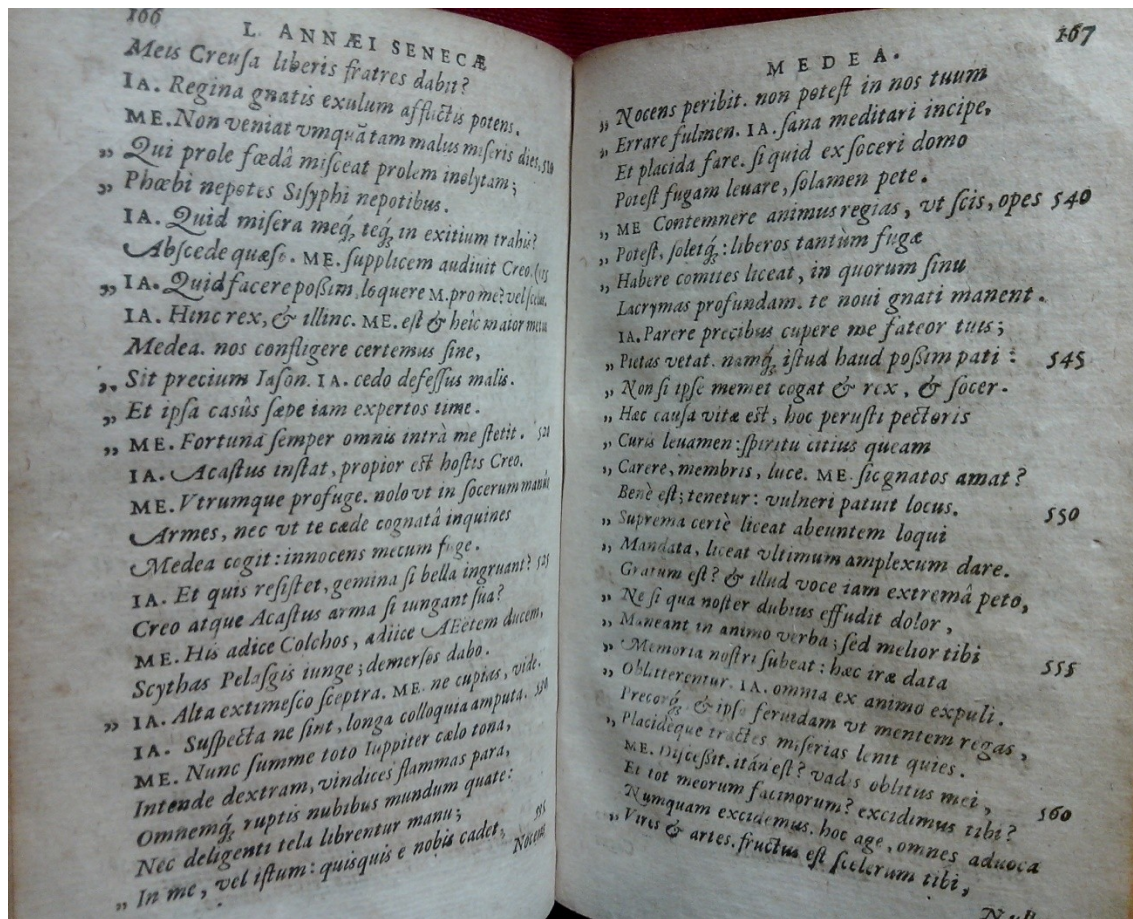 166
L. ANNÆI SENECÆ
Meis Creuſa liberis fratres dabit?
IA. Regina gnatis exulum afflictis potens.
ME. Non veniat vmquã tam malus miſeris dies, 510
„ Qui prole fœdâ miſceat prolem inclytam;
„ Phœbi nepotes Siſyphi nepotibus.
IA. Quid miſera meq́ʒ teq́ʒ in exitium trahis?
Abſcede quæſo. ME. ſupplicem audiuit Creo. (515
„ IA. Quid facere poßim, loquere M. pro me? vel ſcelus.
IA. Hinc rex, & illinc. ME. eſt & heic maior metus
Medea. nos confligere certemus ſine,
„ Sit precium Iaſon. IA. cedo defeſſus malis.
„ Et ipſa caſûs ſæpe iam expertos time.
„ ME. Fortuna ſemper omnis intrà me ſtetit. 520
IA. Acaſtus inſtat, propior eſt hoſtis Creo.
ME. Vtrumque profuge. nolo vt in ſocerum manûs
Armes, nec vt te cæde cognatâ inquines
Medea cogit: innocens mecum fuge.
IA. Et quis reſiſtet, gemina ſi bella ingruant? 525
Creo atque Acaſtus arma ſi iungant ſua?
ME. His adice Colchos, adiice AEetem ducem,
Scythas Pelaſgis iunge; demerſos dabo.
„ IA. Alta extimeſco ſceptra. ME. ne cupias, vide.
IA. Suſpecta ne ſint, longa colloquia amputa. 530
ME. Nunc ſumme toto Iuppiter cælo tona,
Intende dextram, vindices flammas para,
Omnemq́ʒ ruptis nubibus mundum quate:
Nec deligenti tela librentur manu; 535
„ In me, vel iſtum: quisquis e nobis cadet,
Nocens
167
MEDEA.
„ Nocens peribit. non poteſt in nos tuum
„ Errare fulmen. IA. ſana meditari incipe,
Et placida fare. ſi quid ex ſoceri domo
Poteſt fugam leuare, ſolamen pete.
„ ME Contemnere animus regias, vt ſcis, opes 540
„ Poteſt, ſoletq́ʒ: liberos tantùm fugæ
„ Habere comites liceat, in quorum ſinu
Lacrymas profundam. te noui gnati manent.
IA. Parere precibus cupere me fateor tuis;
„ Pietas vetat. namq́ʒ iſtud haud poßim pati: 545
„ Non ſi ipſe memet cogat & rex, & ſocer.
„ Hæc cauſa vitæ eſt, hoc peruſti pectoris
„ Curis leuamen: ſpiritu citius queam
„ Carere, membris, luce. ME. ſic gnatos amat?
Benè eſt; tenetur: vulneri patuit locus. 550
„ Suprema certè liceat abeuntem loqui
„ Mandata, liceat vltimum amplexum dare.
Gratum eſt? & illud voce iam extremâ peto,
„ Ne ſi qua noſter dubius effudit dolor,
„ Maneant in animo verba; ſed melior tibi
„ Memoria noſtri ſubeat: hæc iræ data 555
„ Oblitterentur. IA. omnia ex animo expuli.
Precorq́ʒ & ipſe feruidam vt mentem regas,
„ Placideque tractes miſerias lenit quies.
ME. Diſceßit. itán eſt? vadis oblitus mei,
Et tot meorum facinorum? excidimus tibi? 560
Numquam excidemus. hoc age, omnes aduoca
„ Vires & artes. fructus eſt ſcelerum tibi,